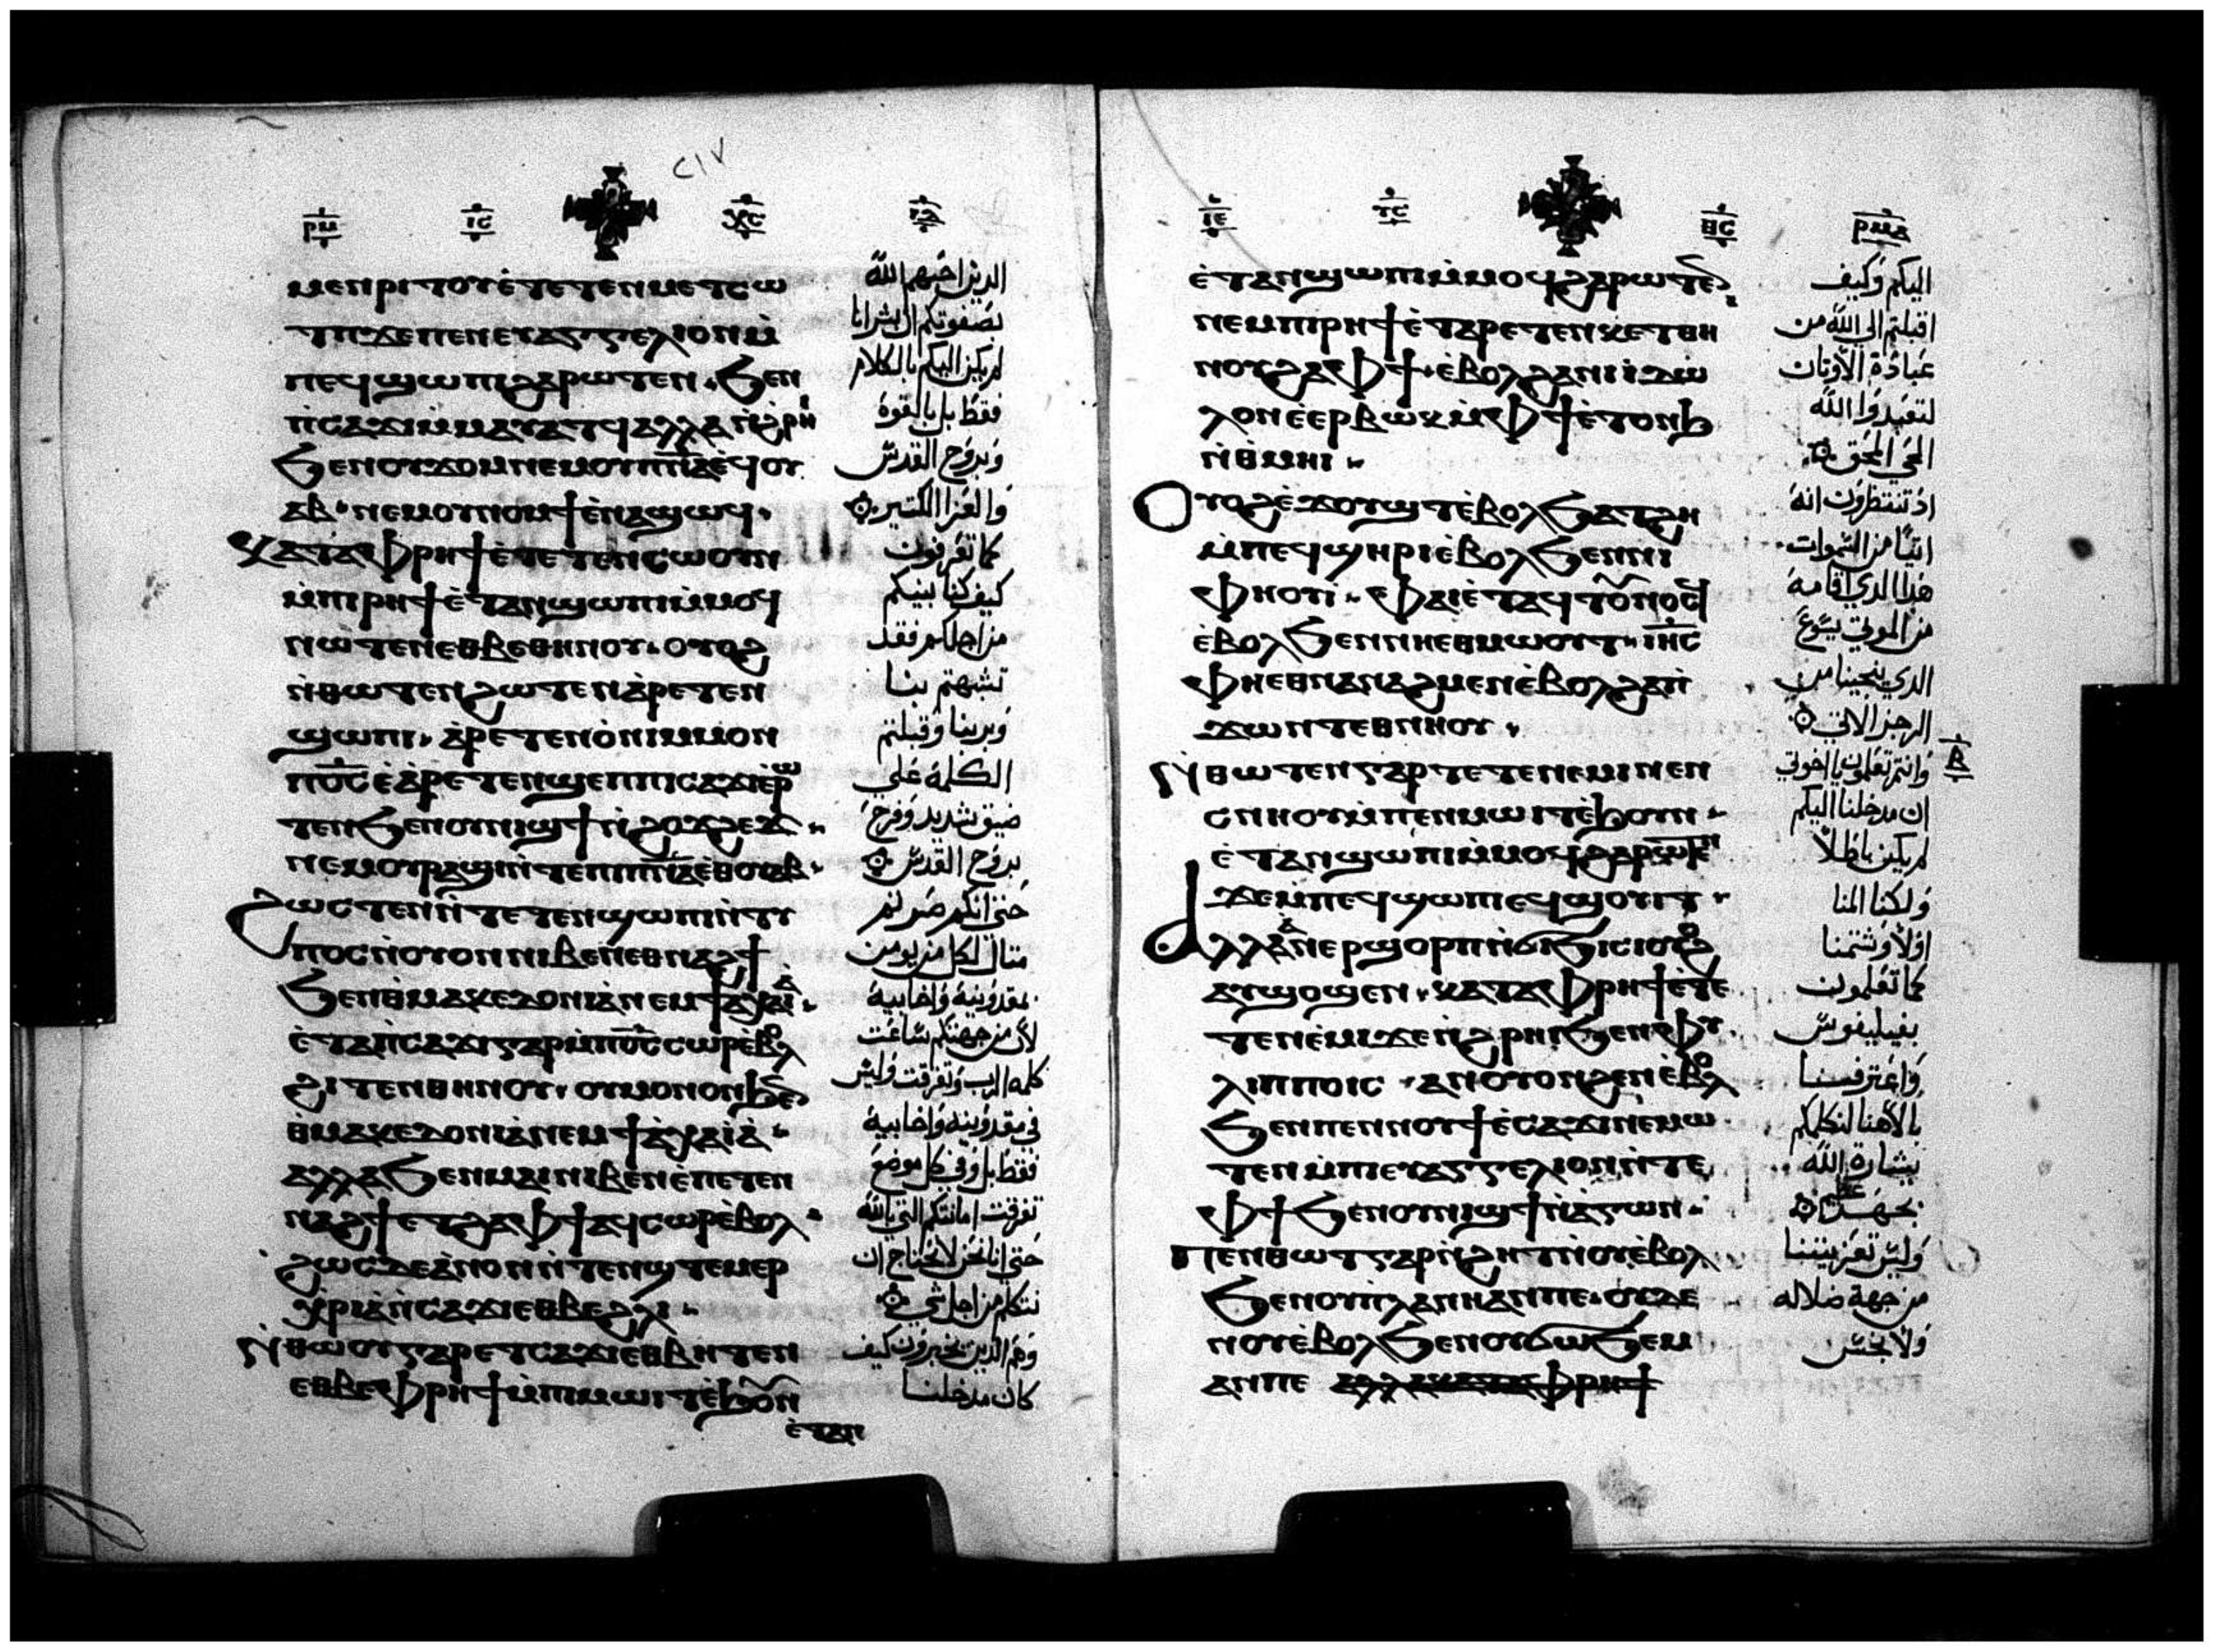 ⲣⲙ ⲓⲥ ⲭⲥ
٢١٧
ⲙⲉⲛⲣⲓⲧⲟⲩⲉ̀ⲧⲉⲧⲉⲛⲙⲉⲧⲥⲱ
ⲧⲡϫⲉⲡⲉⲛⲉⲩⲁⲅⲅⲉⲗⲓⲟⲛⲙ̀
ⲡⲉϥϣⲱⲡⲓϩⲁⲣⲱⲧⲉⲛ ϧⲉⲛ
ⲡ̀ⲥⲁϫⲓⲙ̀ⲙⲁⲩⲁⲧϥⲁⲗⲗⲁⲛ̀ϩ̀ⲣⲏ
ϧⲉⲛⲟⲩϫⲟⲙⲛⲉⲙⲟⲩⲡⲛ̅ⲁ̅ⲉ̀ϥⲟⲩ
ⲁⲃ ⲛⲉⲙⲟⲩⲛⲟⲙϯⲉ̀ⲛⲁϣⲱϥ
ⲕⲁⲧⲁⲫⲣⲏϯⲉ̀ⲧⲉⲧⲉⲛⲥⲱⲟⲩⲛ
ⲙ̀ⲡⲓⲣⲏϯⲉ̀ⲧⲁⲛϣⲱⲡⲓⲙ̀ⲙⲟϥ
ⲛⲱⲧⲉⲛⲉⲑⲃⲉⲑⲏⲛⲟⲩ ⲟⲩⲟϩ
ⲛ̀ⲑⲱⲧⲉⲛϩⲱⲧⲉⲛⲁ̀ⲣⲉⲧⲉⲛ
ϣⲱⲡⲓ ⲁ̀ⲣⲉⲧⲉⲛⲟ̀ⲛⲓⲙ̀ⲙⲟⲛ
ⲡⲟ̅ⲥ̅ⲉ̀ⲁ̀ⲣⲉⲧⲉⲛϣⲉⲡⲡⲓⲥⲁϫⲓⲉ̀ⲣⲱ
ⲧⲉⲛϧⲉⲛⲟⲩⲛⲓϣϯⲛ̀ϩⲟϫϩⲉϫ
ⲛⲉⲙⲟⲩⲣⲁϣⲓⲛ̀ⲧⲉⲡⲓⲡⲛ̅ⲁ̅ⲉ̀ⲑⲟⲩⲁⲃ
ϩⲱⲥⲧⲉⲛⲛ̀ⲧⲉⲧⲉⲛϣⲱⲡⲓⲛ̀ⲧⲩ
ⲡⲟⲥⲛ̀ⲟⲩⲟⲛⲛⲓⲃⲉⲛⲉⲑⲛⲁϩϯ
ϧⲉⲛⲑ̀ⲙⲁⲕⲉⲇⲟⲛⲓⲁ̀ⲛⲉⲙϯⲁⲭⲁⲓ̀ⲁ
ⲉ̀ⲧⲁⲡ̀ⲥⲁϫⲓⲅⲁⲣⲙ̀ⲡⲟ̅ⲥ̅ⲥⲱⲣⲉ̀ⲃⲟⲗ
ϩⲓⲧⲉⲛⲑⲏⲛⲟⲩ ⲟⲩⲙⲟⲛⲟⲛϧⲉⲛ
ⲑ̀ⲙⲁⲕⲉⲇⲟⲛⲓⲁ̀ⲛⲉⲙϯⲁ̀ⲭⲁⲓ̀ⲁ̀
ⲁⲗⲗⲁϧⲉⲛⲙⲁⲓⲛⲓⲃⲉⲛⲉ̀ⲡⲉⲧⲉⲛ
ⲛⲁϩϯⲉⲧϩⲁⲫϯⲁϥⲥⲱⲣⲉ̀ⲃⲟⲗ
ϩⲱⲥⲇⲉⲁ̀ⲛⲟⲛⲛ̀ⲧⲉⲛϣⲧⲉⲙⲉⲣ
ⲭⲣⲓⲁ̀ⲛ̀ⲥⲁϫⲓⲉⲑⲃⲉϩⲗⲓ
ⲛ̀ⲑⲱⲟⲩⲅⲁⲣⲉⲧⲥⲁϫⲓⲉⲑⲃⲏⲧⲉⲛ
ⲉⲑⲃⲉⲫⲣⲏϯⲙ̀ⲡⲓⲙⲱⲓⲧⲉ̀ϧⲟⲩⲛ
ⲉ̀ⲧⲁⲛ
الدين احبهم الله
بصفوتكم ان بشرانا
لم يكن اليكم بالكلام
فقط بل بالقوة
وبروح القدس
والعزا الكتير
كما تعرفون
كيف كنا بينكم
من اجلكم فقد
تشبهتم بنا
وبربنا وقبلتم
الكلمة على
ضيق شديد وفرح
بروح القدس
حتى انكم صرتم
متال لكل من يومن
بمقدونية واخاييه
لان من جهتكم شاعت
كلمه الرب وتفرقت وليس
في مقدونية واخاييه
فقط بل وفي كل موضع
تفرقت امانتكم التي بالله
حتى انا نحن لا نحتاج ان
نتكلم من اجل شي
وهم الدين يخبرون كيف
كان مدخلنا
ⲓⲉ ⲩⲥ ⲑⲥ ⲣⲙⲁ
ⲉ̀ⲧⲁⲛϣⲱⲡⲓⲙ̀ⲙⲟϥϩⲁⲣⲱⲧⲉⲛ
ⲛⲉⲙⲡⲓⲣⲏϯⲉ̀ⲧⲁⲣⲉⲧⲉⲛⲕⲉⲧⲑⲏ
ⲛⲟⲩϩⲁⲫϯ ⲉ̀ⲃⲟⲗϩⲁⲛⲓⲓ̀ⲇⲱ
ⲗⲟⲛⲉ̀ⲉⲣⲃⲱⲕⲙ̀ⲫϯⲉ̀ⲧⲟⲛϧ
ⲛ̀ⲑⲙⲏⲓ
ⲟⲩⲟϩⲉ̀ϫⲟⲩϣⲧⲉ̀ⲃⲟⲗϧⲁⲧϩⲏ
ⲙ̀ⲡⲉϥϣⲏⲣⲓⲉ̀ⲃⲟⲗϧⲉⲛⲛⲓ
ⲫⲏⲟⲩⲓ ⲫⲁⲓⲉ̀ⲧⲁϥⲧⲟⲩⲛⲟⲥϥ
ⲉ̀ⲃⲟⲗϧⲉⲛⲛⲏⲉⲑⲙⲱⲟⲩⲧ ⲓⲏ̅ⲥ
ⲫⲏⲉⲑⲛⲁⲛⲁϩⲙⲉⲛⲉ̀ⲃⲟⲗϩⲁⲡⲓ
ϫⲱⲛⲧⲉⲑⲛⲏⲟⲩ
ⲛ̀ⲑⲱⲧⲉⲛⲅⲁⲣⲧⲉⲧⲉⲛⲉ̀ⲙⲓⲛⲉⲛ
ⲥⲛⲏⲟⲩⲙ̀ⲡⲉⲛⲙⲱⲓⲧⲉ̀ϧⲟⲩⲛ
ⲉ̀ⲧⲁⲛϣⲱⲡⲓⲙ̀ⲙⲟϥϩⲁⲣⲱⲧⲉⲛ
ϫⲉⲙ̀ⲡⲉϥϣⲱⲡⲓⲉϥϣⲟⲩⲓⲧ
ⲁⲗⲗⲁⲁⲛⲉⲣϣⲟⲣⲡⲛ̀ϭⲓϧⲓⲥⲓⲟⲩⲟϩ
ⲁⲩϣⲟϣⲉⲛ ⲕⲁⲧⲁⲫⲣⲏϯⲉ̀ⲧⲉ
ⲧⲉⲛⲉ̀ⲙⲓϫⲉⲛ̀ϩ̀ⲣⲏⲓϧⲉⲛⲫⲩ
ⲗⲓⲡⲡⲟⲓⲥ ⲁⲛⲟⲩⲟⲛϩⲉⲛⲉ̀ⲃⲟⲗ
ϧⲉⲛⲡⲉⲛⲛⲟⲩϯⲉ̀ⲥⲁϫⲓⲛⲉⲙⲱ
ⲧⲉⲛⲙ̀ⲡⲓⲉⲩⲁⲅⲅⲉⲗⲓⲟⲛⲛ̀ⲧⲉ
ⲫϯϧⲉⲛⲟⲩⲛⲓϣϯⲛ̀ⲁ̀ⲅⲱⲛ
ⲡⲉⲛⲑⲱⲧⲅⲁⲣⲛ̀ϩⲏⲧⲛ̀ⲟⲩⲉ̀ⲃⲟⲗ
ϧⲉⲛⲟⲩⲡⲗⲁⲛⲏⲁⲛⲡⲉ ⲟⲩⲇⲉ
ⲛⲟⲩⲉ̀ⲃⲟⲗϧⲉⲛⲟⲩϭⲱϧⲉⲙ
ⲁⲛⲡⲉ ⲁⲗⲗⲁⲕⲁⲧⲁⲫⲣⲏϯ
اليكم وكيف
اقبلتم الى الله من
عبادة الاوتان
لتعبدوا الله
الحي الحق
اد تنتظرون ابنه
اتيا من السموات
هدا الدي اقامه
من الموتى يسوع
الدي ينجينا من
الرجز الاتي
وانتم تعلمون يا اخوتي
ⲃ
ان مدخلنا اليكم
لم يكن باطلا
ولكنا المنا
اولا وشتمنا
كما تعلمون
بفيليفوس
واعترفنا
بالاهنا لنكلمكم
ببشارة الله
بجهد عظيم
وليس تعزيتنا
من جهة ضلاله
ولا نجس